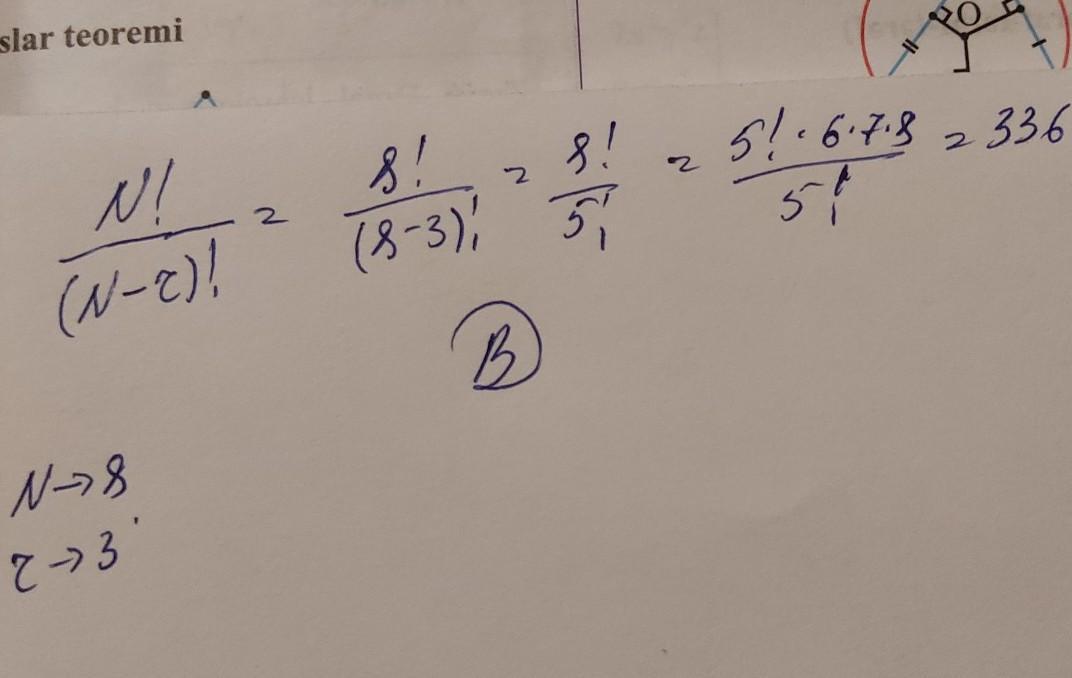 slar teoremi
O
N!/(N-r)! = 8!/(8-3)! = 8!/5! = 5!·6·7·8/5! = 336
B
N→8
r→3